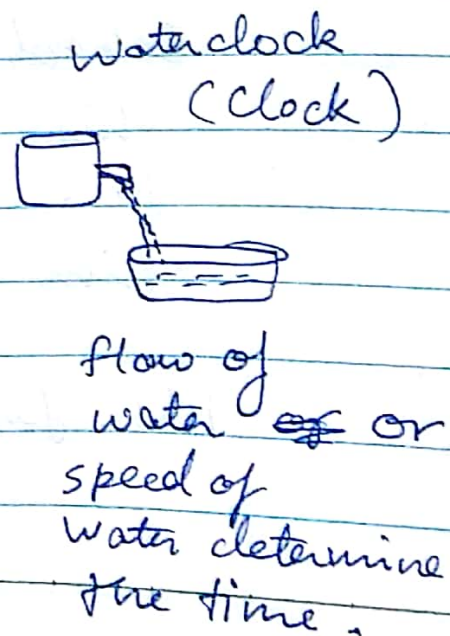 waterclock
(Clock)
flow of
water or
speed of
water determine
the time.